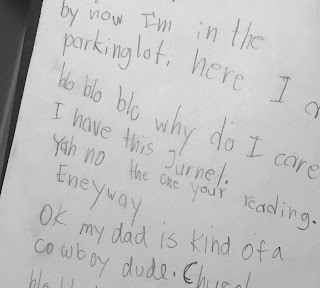 by now I'm in the
parkinglot, here I a
blo blo blo why do I care
I have this Jurnel.
Yah no the one your reading.
Eneyway
OK my dad is kind of a
cowboy dude. Church